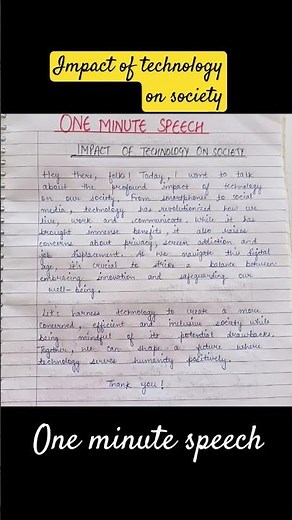 Impact of technology
on society
ONE MINUTE SPEECH
IMPACT OF TECHNOLOGY ON SOCIETY
Hey there, folks! Today, I want to talk
about the profound impact of technology
on our society. From smartphones to social
media, technology has revolutionized how we
live, work and communicate. While it has
brought immense benefits, it also raises
concerns about privacy, screen addiction and
job displacement. As we navigate this digital
age, it's crucial to strike a balance between
embracing innovation and safeguarding our
well-being.
Let's harness technology to create a more
connected, efficient and inclusive society while
being mindful of its potential drawbacks.
Together, we can shape a future where
technology serves humanity positively.
Thank you!
One minute speech